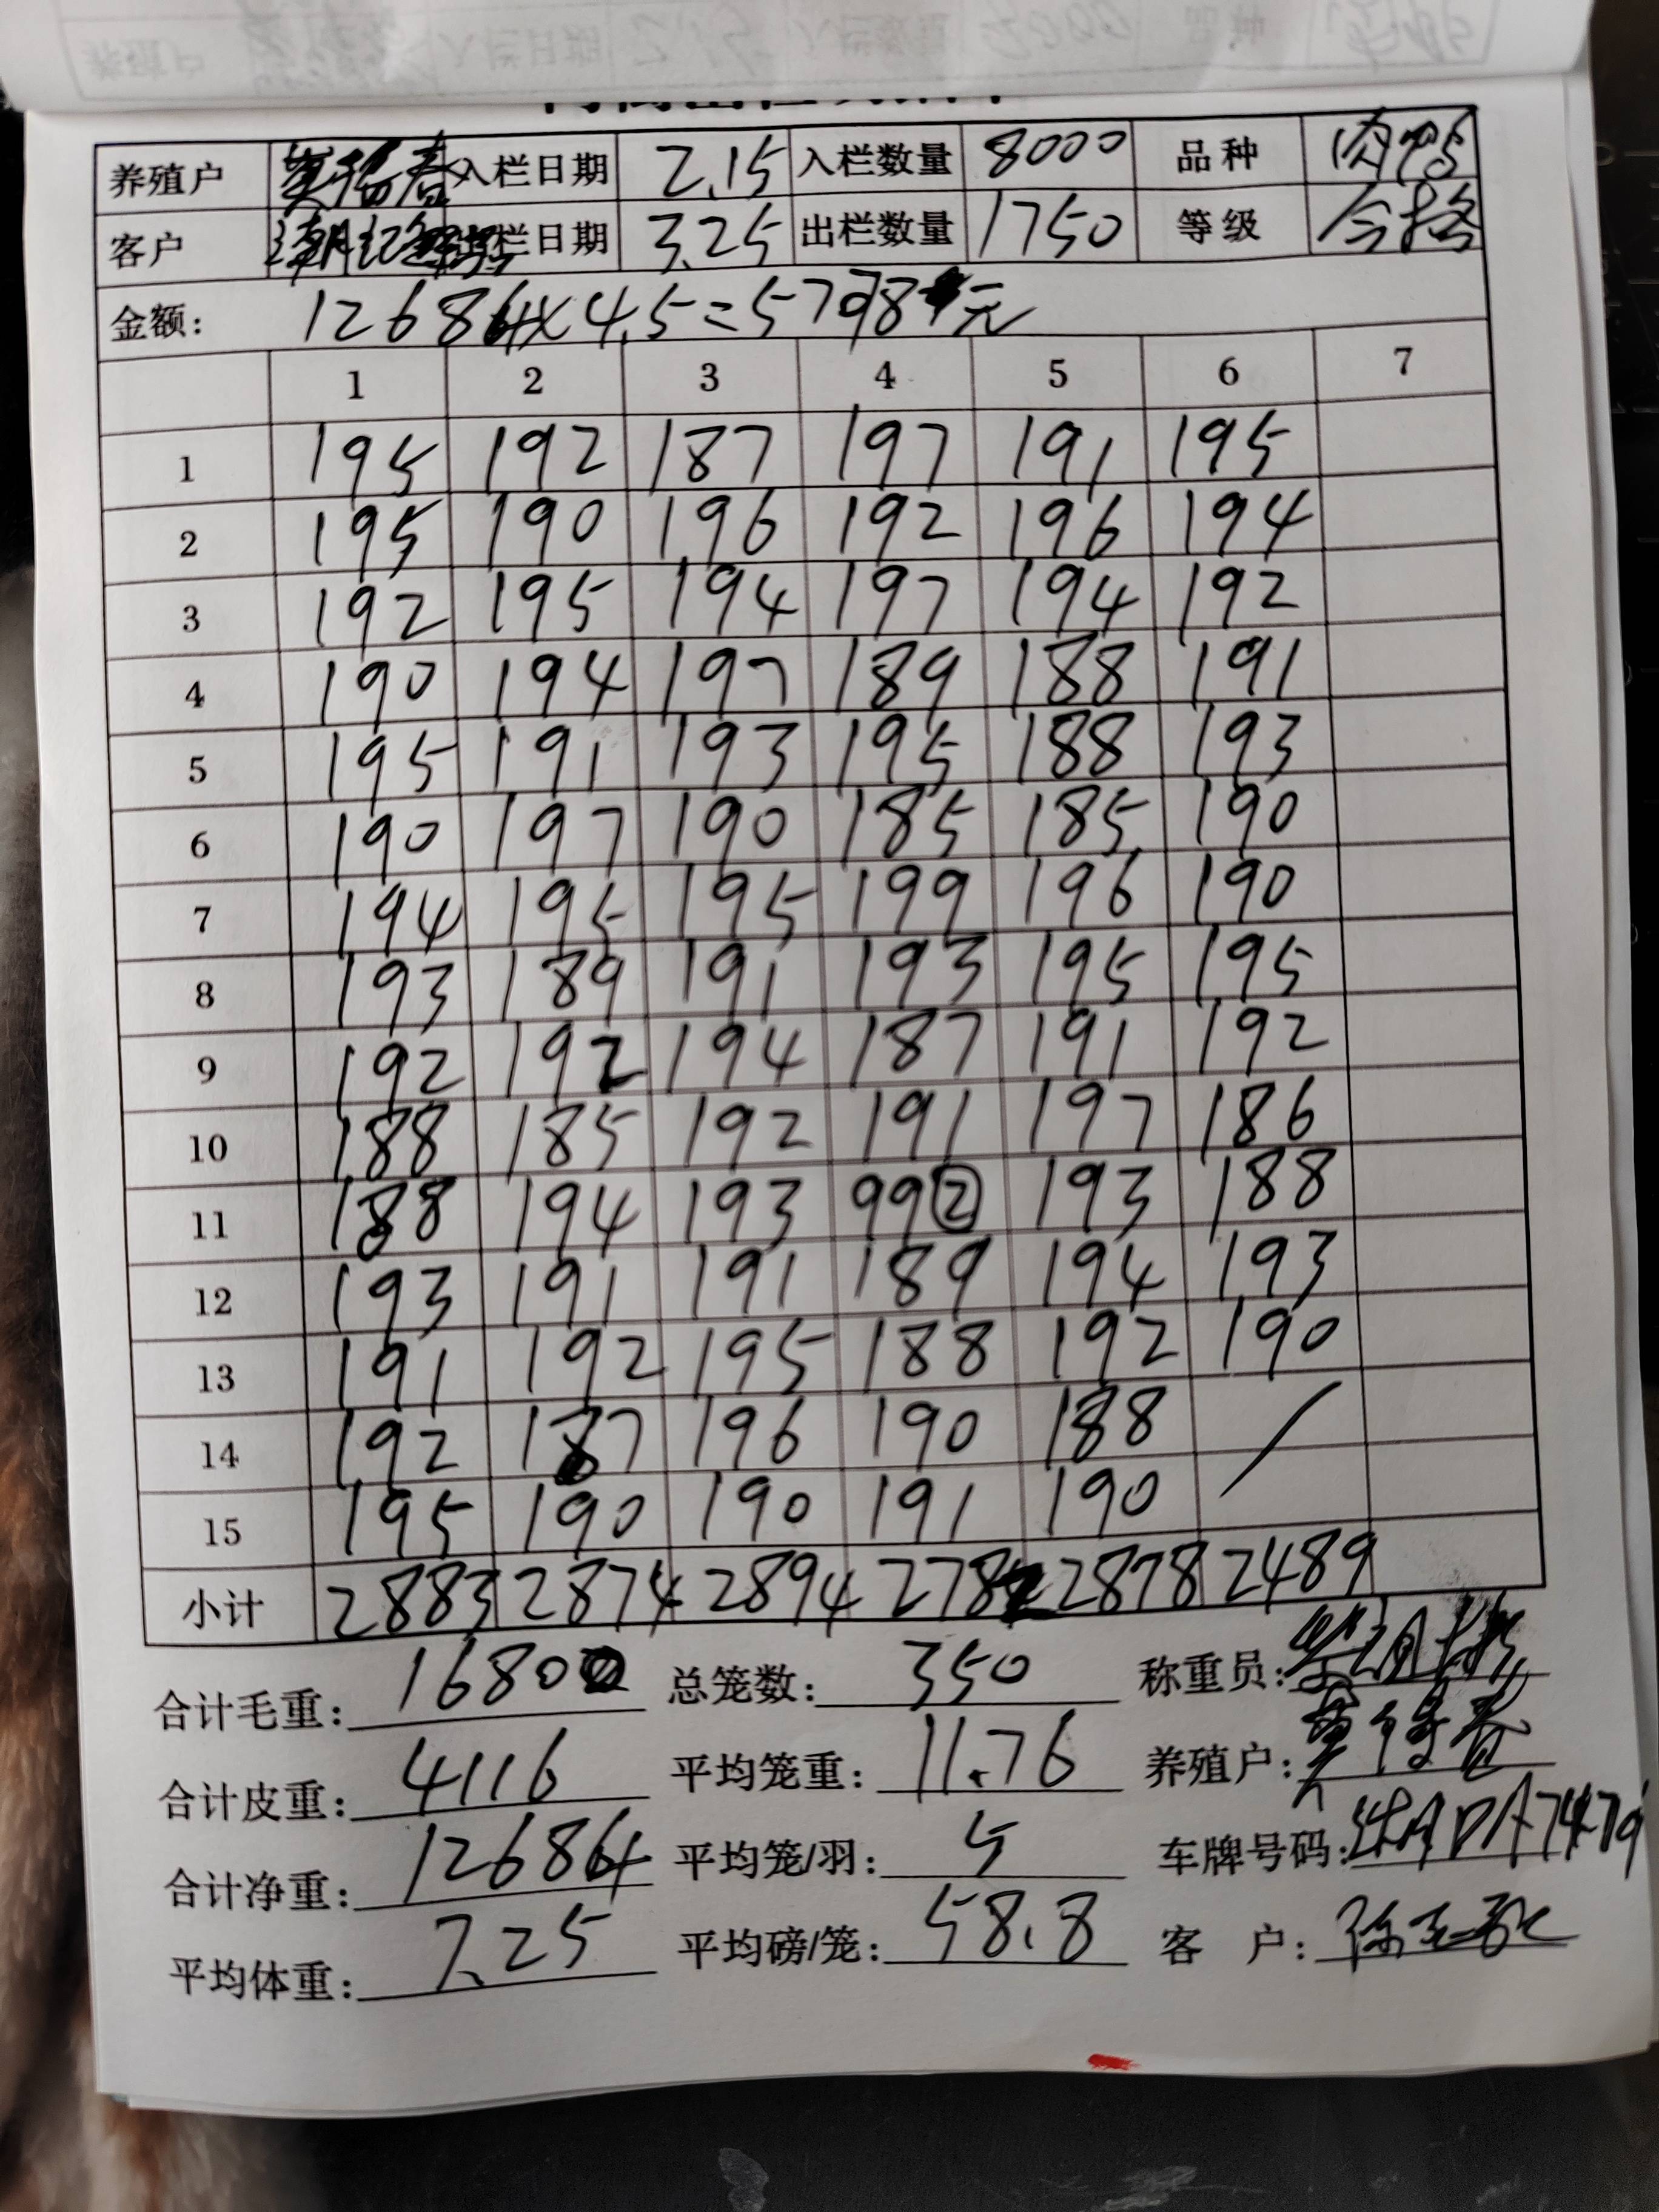 养殖户 入栏日期 2.15 入栏数量 8000 品种 肉鸭
客户 出栏日期 3.25 出栏数量 1750 等级 合格
金额: 12684×4.5=57984元
1 2 3 4 5 6 7
1 195 192 187 197 191 195
2 195 190 196 192 196 194
3 192 195 194 197 194 192
4 190 194 197 189 188 191
5 195 191 193 195 188 193
6 190 197 190 185 185 190
7 194 195 195 199 196 190
8 193 189 191 193 195 195
9 192 192 194 187 191 192
10 188 185 192 191 197 186
11 188 194 193 99② 193 188
12 193 191 191 189 194 193
13 191 192 195 188 192 190
14 192 187 196 190 188
15 195 190 190 191 190
小计 2883 2874 2894 2782 2878 2489
合计毛重: 16800 总笼数: 350 称重员:
合计皮重: 4116 平均笼重: 11.76 养殖户:
合计净重: 12684 平均笼/羽: 5 车牌号码:
平均体重: 7.25 平均磅/笼: 58.8 客 户: